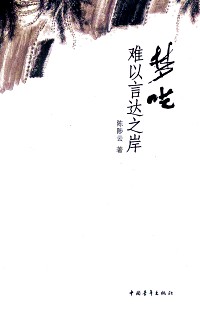 梦呓
难以言达之岸
陈陟云 著
中国青年出版社